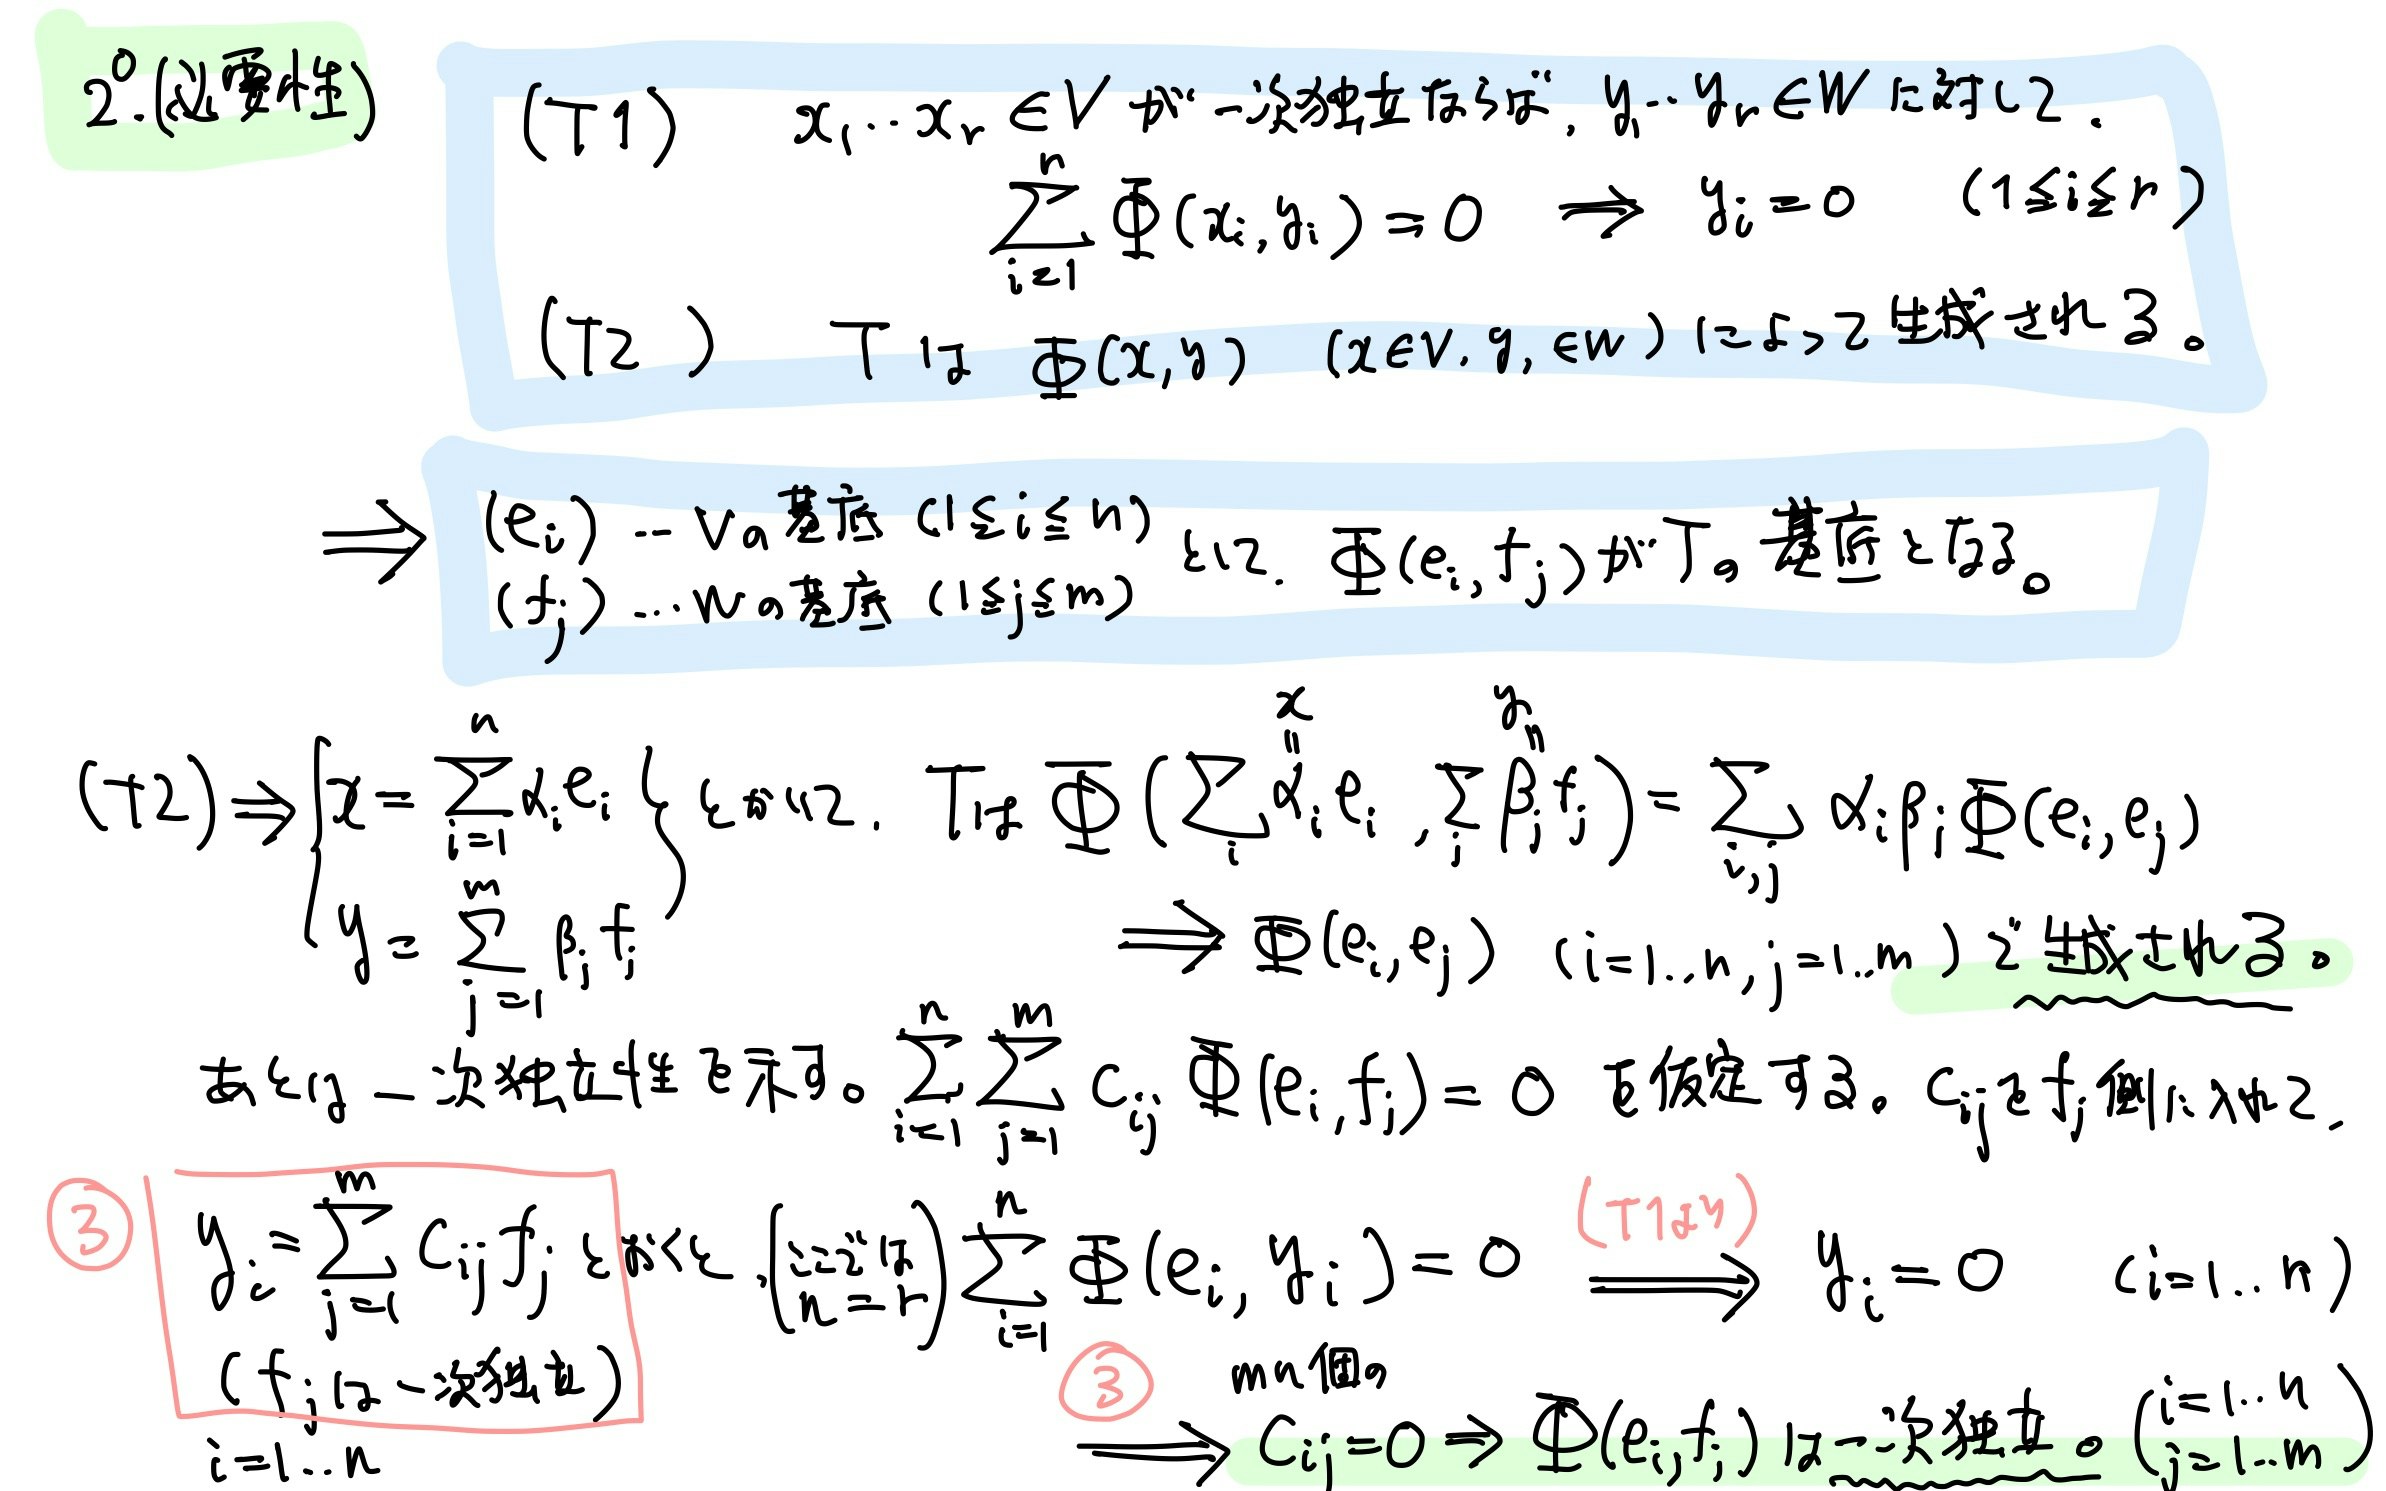 2°.(必要性)
(T1) x₁‥xᵣ∈V が一次独立ならば, y₁‥yᵣ∈W に対して,
∑_{i=1}^{r} Φ(xᵢ, yᵢ) = 0 ⇒ yᵢ = 0 (1≦i≦r)
(T2) T は Φ(x, y) (x∈V, y, ∈W) によって生成される。
⇒ (eᵢ) … Vの基底 (1≦i≦n)
(fⱼ) … Wの基底 (1≦j≦m) として, Φ(eᵢ, fⱼ) が T の基底となる。
(T2) ⇒ { x = ∑_{i=1}^{n} αᵢeᵢ
y = ∑_{j=1}^{m} βⱼfⱼ } とおいて, Tは Φ(∑_i αᵢeᵢ, ∑_j βⱼfⱼ) = ∑_{i,j} αᵢβⱼΦ(eᵢ, eⱼ)
x = y =
⇒ Φ(eᵢ, eⱼ) (i=1‥n, j=1‥m) で生成される。
あとは一次独立性を示す。 ∑_{i=1}^{n} ∑_{j=1}^{m} cᵢⱼ Φ(eᵢ, fⱼ) = 0 を仮定する。 cᵢⱼを fⱼ側に入れて,
③ yᵢ = ∑_{j=1}^{m} cᵢⱼfⱼ とおくと, (ここでは n=r) ∑_{i=1}^{n} Φ(eᵢ, yᵢ) = 0 (T1より) ⇒ yᵢ = 0 (i=1‥n)
(fⱼは一次独立)
i=1‥n
③ ⇒ mn個の cᵢⱼ=0 ⇒ Φ(eᵢ, fⱼ) は一次独立。 (i=1‥n j=1‥m)